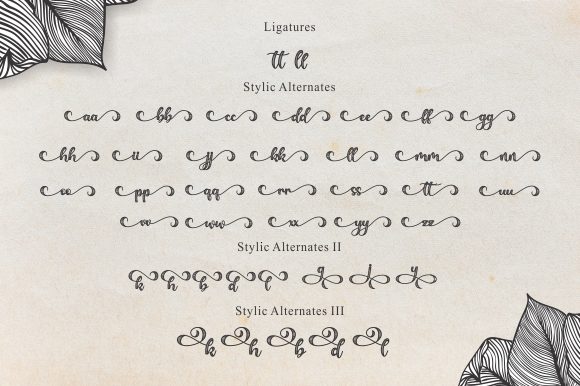 Ligatures
tt ll
Stylic Alternates
aa bb cc dd ee ff gg
hh ii jj kk ll mm nn
oo pp qq rr ss tt uu
vv ww xx yy zz
Stylic Alternates II
k h b d l g j y
Stylic Alternates III
k h b d l